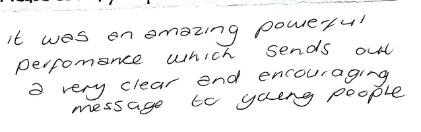 it was an amazing powerful
perfomance which sends out
a very clear and encouraging
message to young people